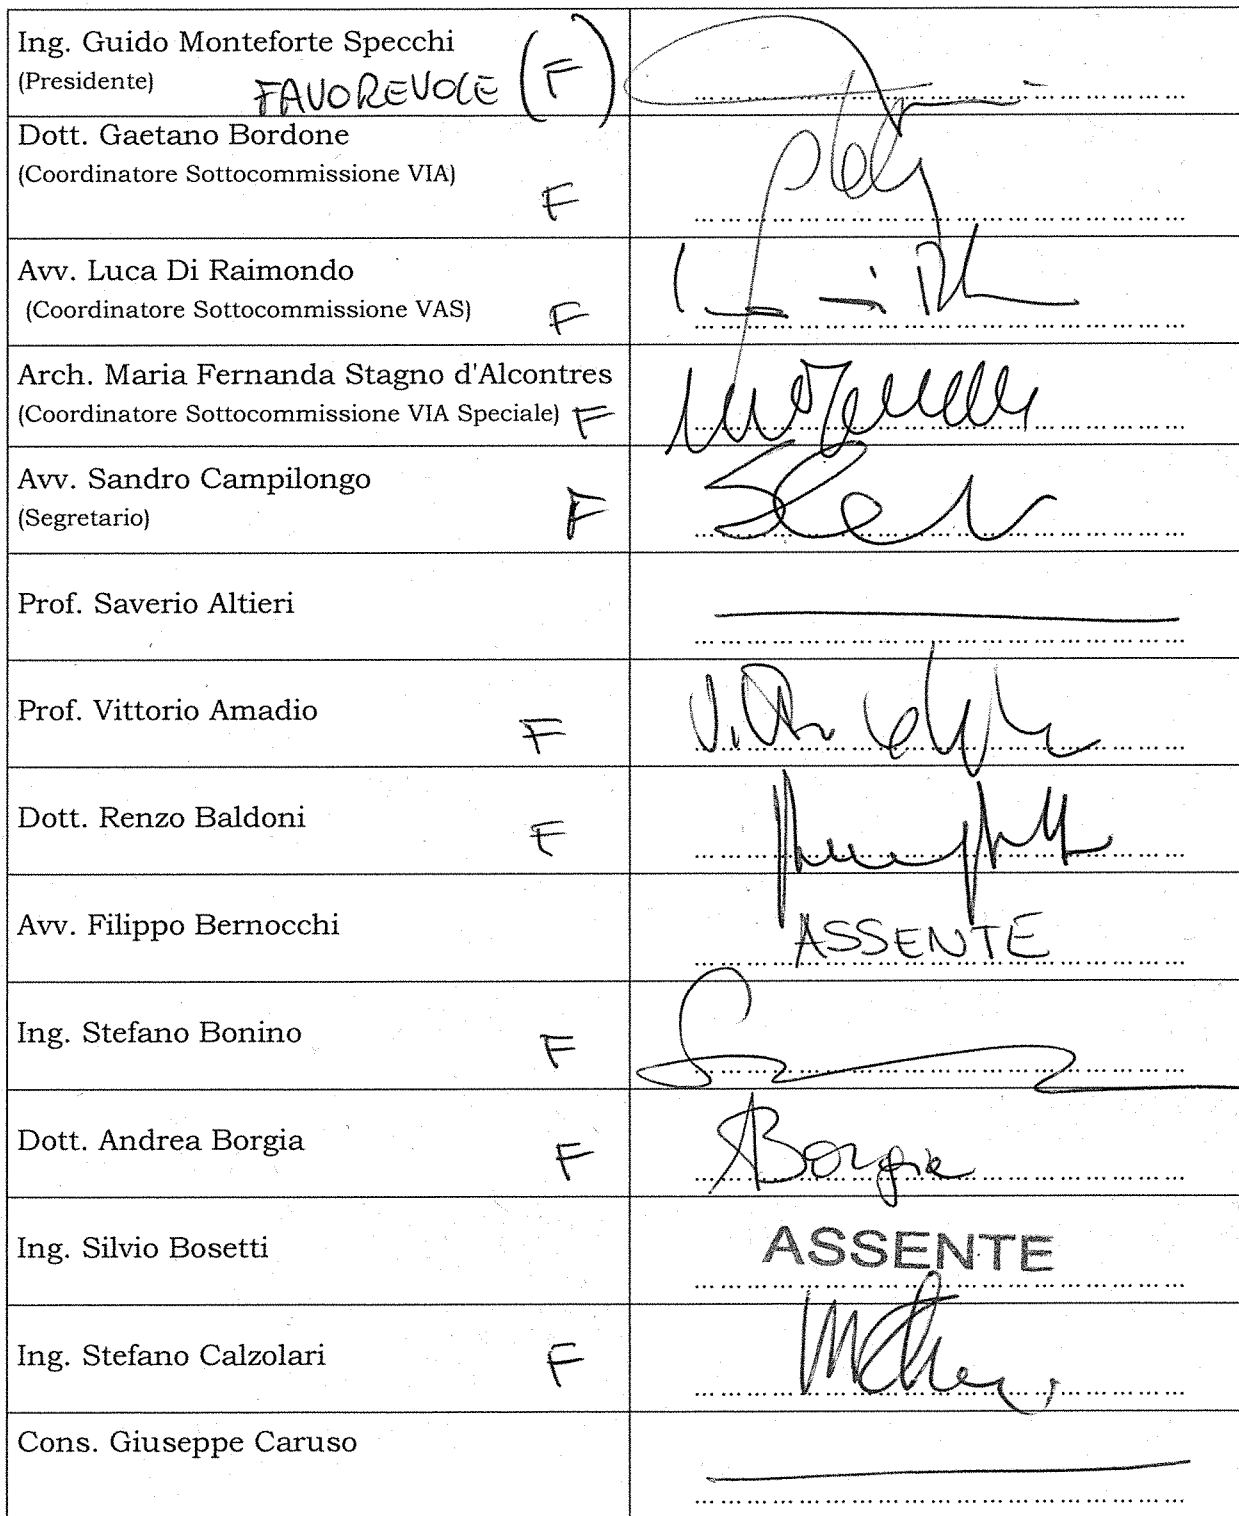 Ing. Guido Monteforte Specchi
(Presidente)
FAVOREVOLE (F)
Dott. Gaetano Bordone
(Coordinatore Sottocommissione VIA)
F
Avv. Luca Di Raimondo
(Coordinatore Sottocommissione VAS)
F
Arch. Maria Fernanda Stagno d'Alcontres
(Coordinatore Sottocommissione VIA Speciale) F
Avv. Sandro Campilongo
(Segretario)
F
Prof. Saverio Altieri
Prof. Vittorio Amadio
F
Dott. Renzo Baldoni
F
Avv. Filippo Bernocchi
ASSENTE
Ing. Stefano Bonino
F
Dott. Andrea Borgia
F
ABorgia
Ing. Silvio Bosetti
ASSENTE
Ing. Stefano Calzolari
F
Cons. Giuseppe Caruso